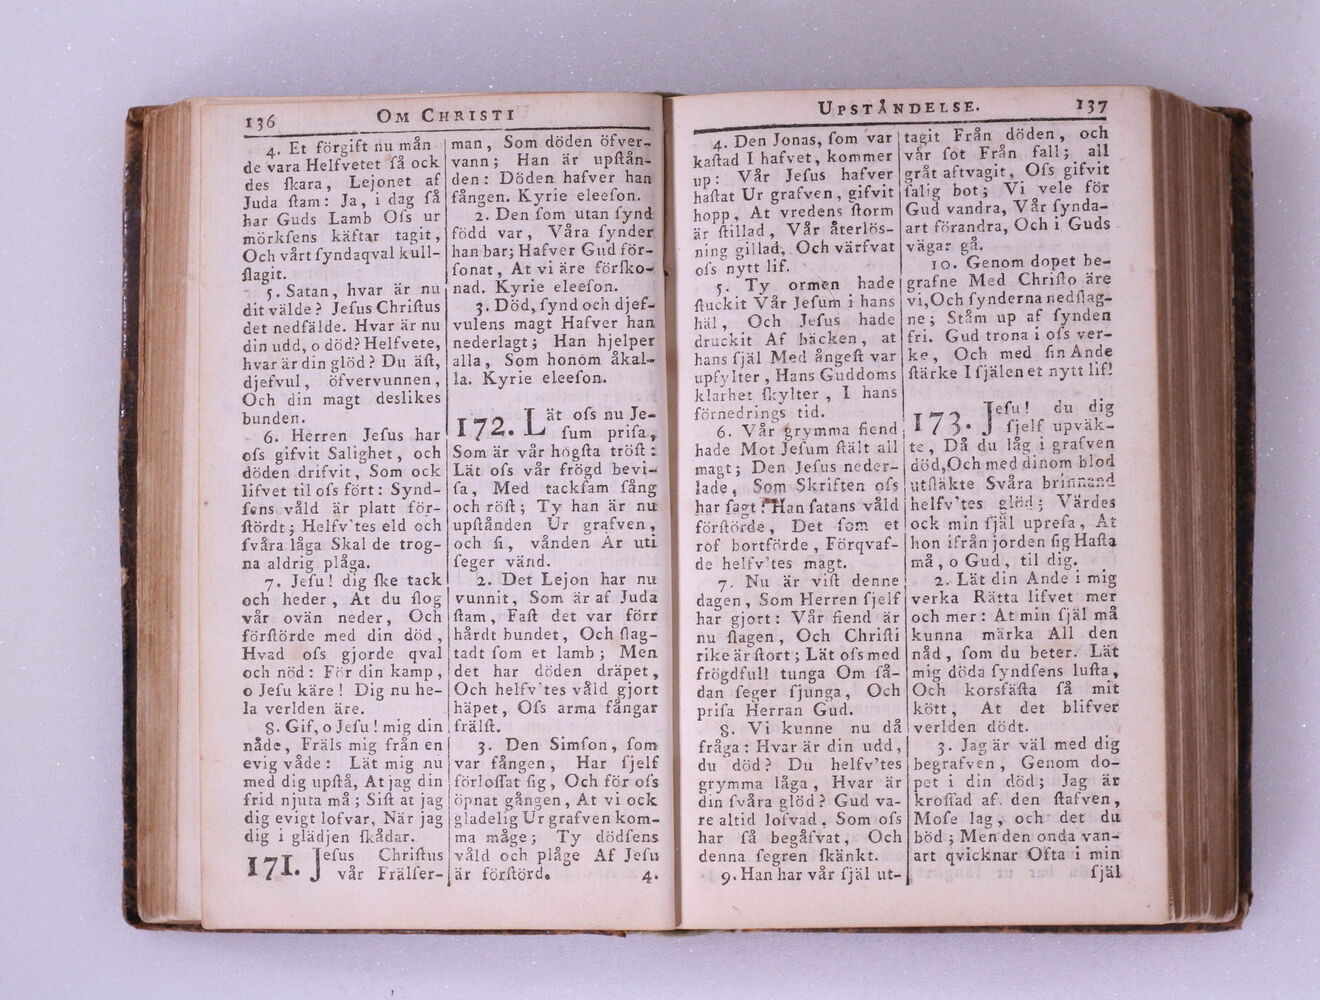 136
OM CHRISTI
4. Et förgift nu mån
de vara Helfvetet ſå ock
des ſkara, Lejonet af
Juda ſtam: Ja, i dag ſå
har Guds Lamb Oſs ur
mörkſens käftar tagit,
Och vårt ſyndaqval kull-
ſlagit.
5. Satan, hvar är nu
dit välde? Jeſus Chriſtus
det nedfälde. Hvar är nu
din udd, o död? Helfvete,
hvar är din glöd? Du äſt,
djefvul, öfvervunnen,
Och din magt deslikes
bunden.
6. Herren Jeſus har
oſs gifvit Salighet, och
döden drifvit, Som ock
lifvet til oſs fört: Synd-
ſens våld är platt för-
ſtördt; Helfv'tes eld och
ſvåra låga Skal de trog-
na aldrig plåga.
7. Jeſu! dig ſke tack
och heder, At du ſlog
vår ovän neder, Och
förſtörde med din död,
Hvad oſs gjorde qval
och nöd: För din kamp,
o Jeſu käre! Dig nu he-
la verlden äre.
8. Gif, o Jeſu! mig din
nåde, Fräls mig från en
evig våde: Lät mig nu
med dig upſtå, At jag din
frid njuta må; Siſt at jag
dig evigt lofvar, När jag
dig i glädjen ſkådar.
171. Jeſus Chriſtus
vår Frälſer-
man, Som döden öfver-
vann; Han är upſtån-
den: Döden hafver han
fången. Kyrie eleeſon.
2. Den ſom utan ſynd
född var, Våra ſynder
han bar; Hafver Gud för-
ſonat, At vi äre förſko-
nad. Kyrie eleeſon.
3. Död, ſynd och djef-
vulens magt Hafver han
nederlagt; Han hjelper
alla, Som honom åkal-
la. Kyrie eleeſon.
172. Lät oſs nu Je-
ſum priſa,
Som är vår högſta tröſt:
Lät oſs vår frögd bevi-
ſa, Med tackſam ſång
och röſt; Ty han är nu
upſtånden Ur grafven,
och ſi, vånden Är uti
ſeger vänd.
2. Det Lejon har nu
vunnit, Som är af Juda
ſtam, Faſt det var förr
hårdt bundet, Och ſlag-
tadt ſom et lamb; Men
det har döden dräpet,
Och helfv'tes våld gjort
häpet, Oſs arma fångar
frälſt.
3. Den Simſon, ſom
var fången, Har ſjelf
förloſſat ſig, Och för oſs
öpnat gången, At vi ock
gladelig Ur grafven kom-
ma måge; Ty dödſens
våld och plåge Af Jeſu
är förſtörd.
4.
UPSTÅNDELSE.
137
4. Den Jonas, ſom var
kaſtad I hafvet, kommer
up: Vår Jeſus hafver
haſtat Ur grafven, gifvit
hopp, At vredens ſtorm
är ſtillad, Vår återlös-
ning gillad, Och värfvat
oſs nytt lif.
5. Ty ormen hade
ſtuckit Vår Jeſum i hans
häl, Och Jeſus hade
druckit Af bäcken, at
hans ſjäl Med ångeſt var
upfylter, Hans Guddoms
klarhet ſkylter, I hans
förnedrings tid.
6. Vår grymma fiend
hade Mot Jeſum ſtält all
magt; Den Jeſus neder-
lade, Som Skriften oſs
har ſagt: Han ſatans våld
förſtörde, Det ſom et
rof bortförde, Förqvaf-
de helfv'tes magt.
7. Nu är viſt denne
dagen, Som Herren ſjelf
har gjort: Vår fiend är
nu ſlagen, Och Chriſti
rike är ſtort; Lät oſs med
frögdfull tunga Om ſå-
dan ſeger ſjunga, Och
priſa Herran Gud.
8. Vi kunne nu då
fråga: Hvar är din udd,
du död? Du helfv'tes
grymma låga, Hvar är
din ſvåra glöd? Gud va-
re altid lofvad, Som oſs
har ſå begåfvat, Och
denna ſegren ſkänkt.
9. Han har vår ſjäl ut-
tagit Från döden, och
vår fot Från fall; all
gråt aftvagit, Oſs gifvit
ſalig bot; Vi vele för
Gud vandra, Vår ſynda-
art förandra, Och i Guds
vägar gå.
10. Genom dopet be-
grafne Med Chriſto äre
vi, Och ſynderna nedſlag-
ne; Ståm up af ſynden
fri. Gud trona i oſs ver-
ke, Och med ſin Ande
ſtärke I ſjälen et nytt lif!
173. Jeſu! du dig
ſjelf upväk-
te, Då du låg i grafven
död, Och med dinom blod
utſläkte Svåra brinnand
helfv'tes glöd; Värdes
ock min ſjäl upreſa, At
hon ifrån jorden ſig Haſta
må, o Gud, til dig.
2. Lät din Ande i mig
verka Rätta lifvet mer
och mer: At min ſjäl må
kunna märka All den
nåd, ſom du beter. Lät
mig döda ſyndſens luſta,
Och korsfäſta ſå mit
kött, At det blifver
verlden dödt.
3. Jag är väl med dig
begrafven, Genom do-
pet i din död; Jag är
kroſſad af den ſtafven,
Moſe lag, och det du
böd; Men den onda van-
art qvicknar Ofta i min
ſjäl